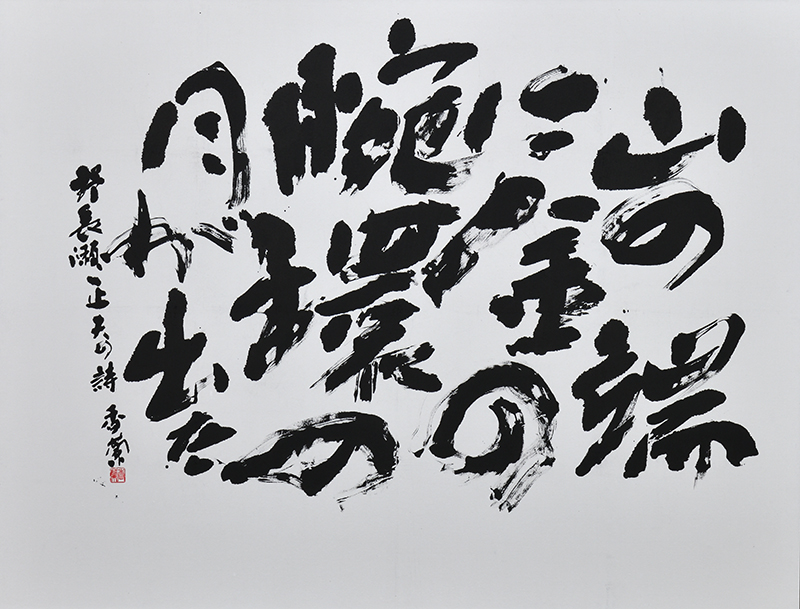 山の端
に金の
腕環の
月が出た
野長瀬正夫の詩